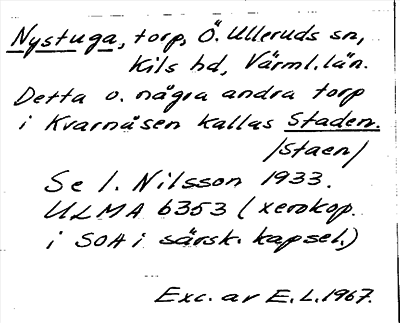 Nystuga, torp, Ö. Ulleruds sn,
Kils hd, Värml. län.
Detta o. några andra torp
i Kvarnåsen kallas Staden.
/Staen/
Se I. Nilsson 1933.
ULMA 6353 (xerokop.
i SOA i särsk. kapsel.)
Exc. av E. L. 1967.